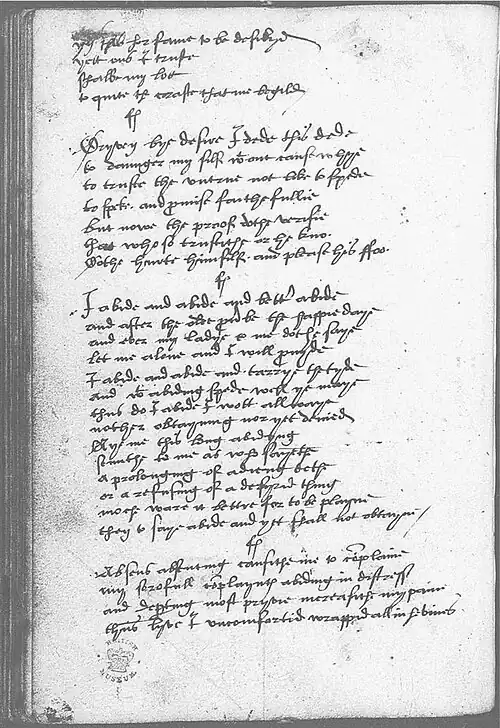 yett ons I truste
shalbe my lot
to quite the craste that me begild
fs
Dryven bye desire I dede this dede
to daunger my self wtout cause whye
to truste the untrue not like to spede
to speke and promise faithefullie
but nowe the proof dothe verifie
that who so trustithe or he kno
Dothe hurte himself and please his ffoo
fs
I abide and abide and better abide
and after the olde proverbe the happie daye
and ever my ladye to me dothe saye
let me alone and I will provyde
I abide and abide and tarrye the tyde
and wt abiding spede well ye maye
thus do I abide I wott allwaye
nother obtayning nor yet denied
Aye me this long abidyng
semithe to me as who sayethe
a prolonging of a dieng dethe
or a refusing of a desyrid thing
moche ware it bettre for to be playne
then to saye abide and yet shall not obtayne
fs
Absens absenting causithe me to complaine
my sorofull complaynts abiding in distress
and departing most pryvie increasithe my paine
thus lyve I uncomfortid wrappid all in hevines
BRITISH MUSEUM